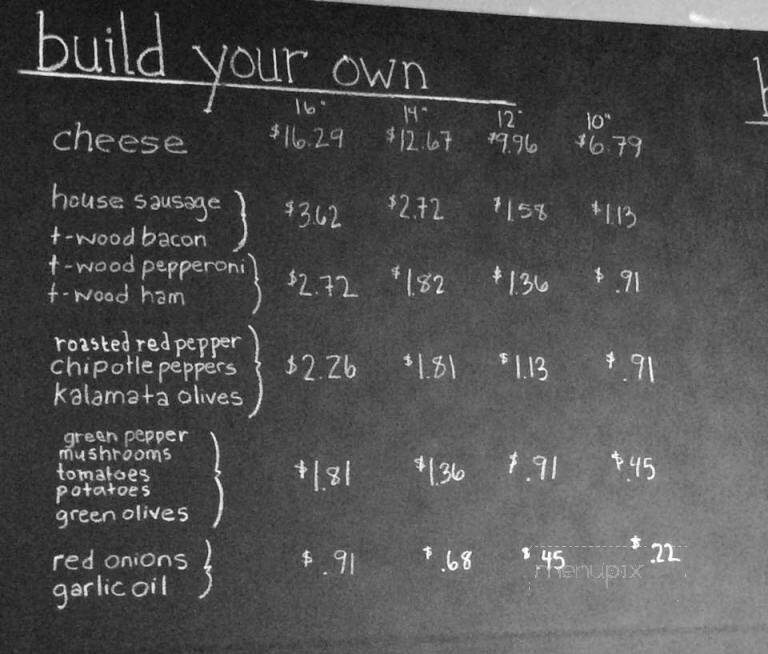 build your own
16" 14" 12" 10"
cheese $16.29 $12.67 $9.96 $6.79
house sausage
t-wood bacon } $3.62 $2.72 $1.58 $1.13
t-wood pepperoni
t-wood ham } $2.72 $1.82 $1.36 $.91
roasted red pepper
chipotle peppers } $2.26 $1.81 $1.13 $.91
kalamata olives
green pepper
mushrooms
tomatoes } $1.81 $1.36 $.91 $.45
potatoes
green olives
red onions } $.91 $.68 $45 $.22
garlic oil
menupix